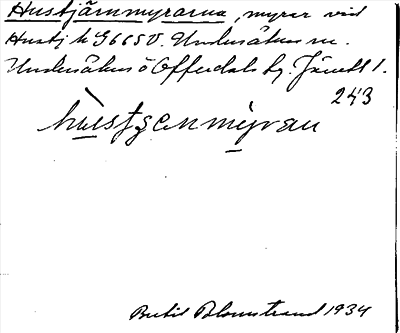 Hustjärnmyrarna, myrar vid
Hustj h G6650. Undersåkers sn.
Undersåkers o Offerdals tg. Jämtl l.
243
hùstʒenmỳran
Bertil Blomstrand 1934